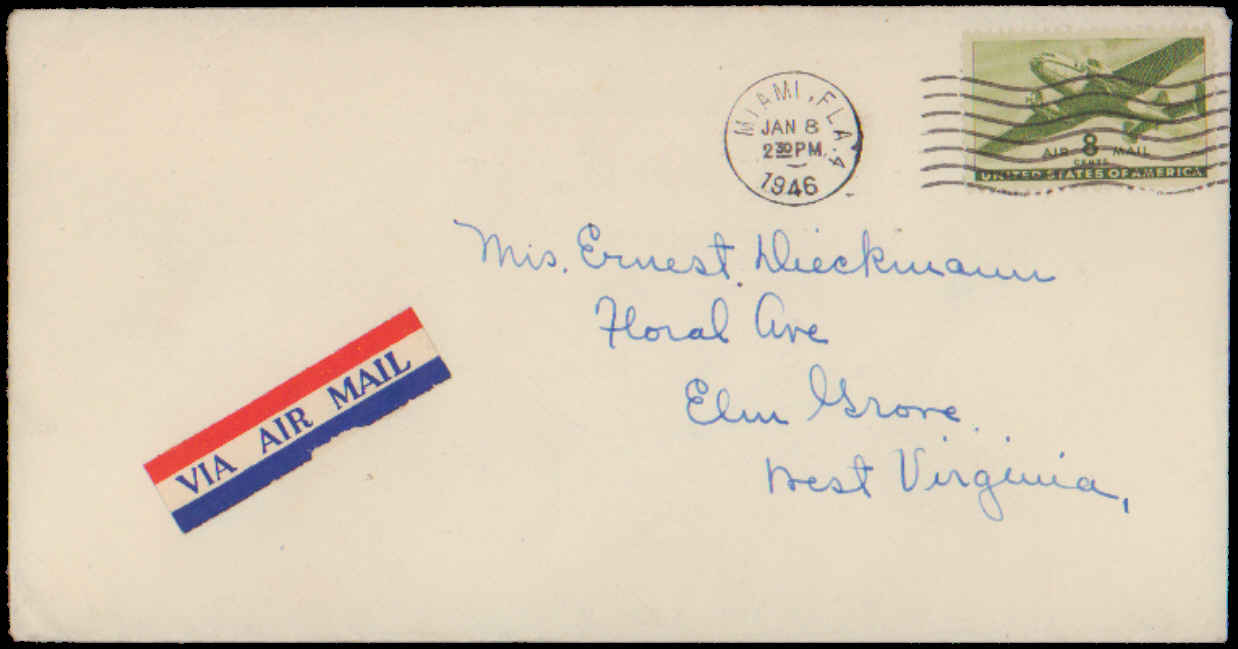 MIAMI, FLA. 4
JAN 8
2 30 PM
1946
AIR 8 MAIL
CENTS
UNITED STATES OF AMERICA
Mrs. Ernest Dieckmann
Floral Ave
Elm Grove.
West Virginia,
VIA AIR MAIL